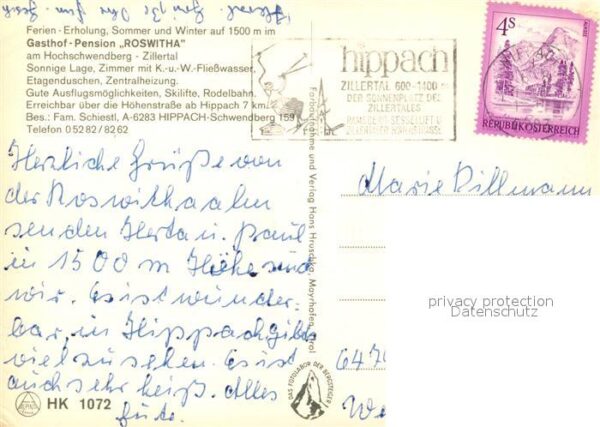 Ferien - Erholung, Sommer und Winter auf 1500 m im
Gasthof - Pension „ROSWITHA"
am Hochschwendberg - Zillertal
Sonnige Lage, Zimmer mit K.-u.-W.-Fließwasser,
Etagenduschen, Zentralheizung.
Gute Ausflugsmöglichkeiten, Skilifte, Rodelbahn.
Erreichbar über die Höhenstraße ab Hippach 7 km.
Bes.: Fam. Schiestl, A-6283 HIPPACH-Schwendberg 159
Telefon 0 52 82 / 82 62
Herzliche Grüße von
der Roswithaalm
senden Herta u. Paul
in 1500 m Höhe sind
wir. Es ist wunder-
bar, in Hippach gibts
viel zu sehen. Es ist
auch sehr heiß. Alles
Gute.
HK 1072
hippach
ZILLERTAL 600-1400 m
DER SONNENPLATZ DES
ZILLERTALES
4S
REPUBLIK ÖSTERREICH
Farbaufnahme und Verlag Hans Hruschka, Mayrhofen, Tirol
DAS FOTOLABOR DER BERGSTEIGER
Marie Dillmann
privacy protection
Datenschutz
647
We